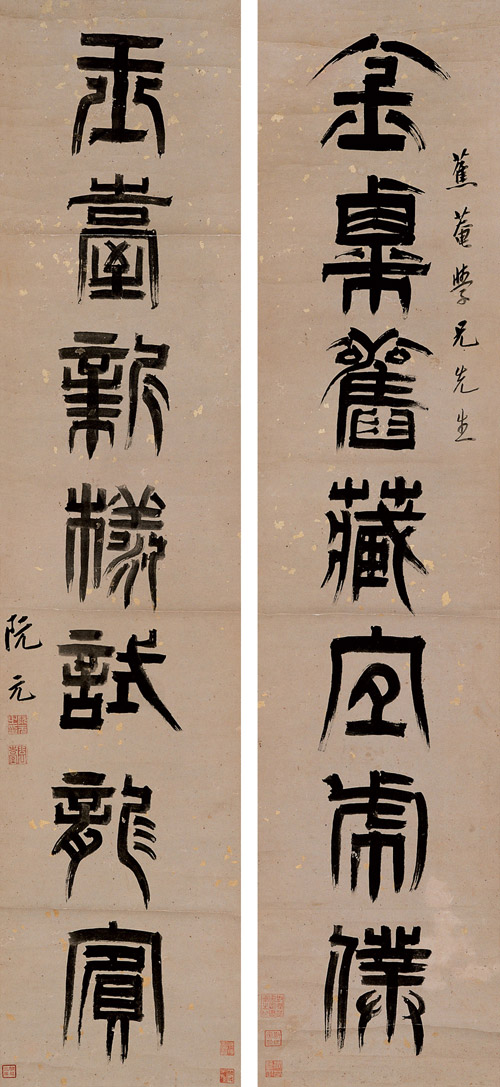 蕉菴學兄先生
金舊藏宜虎僕
玉臺新樣試龍賓
阮元